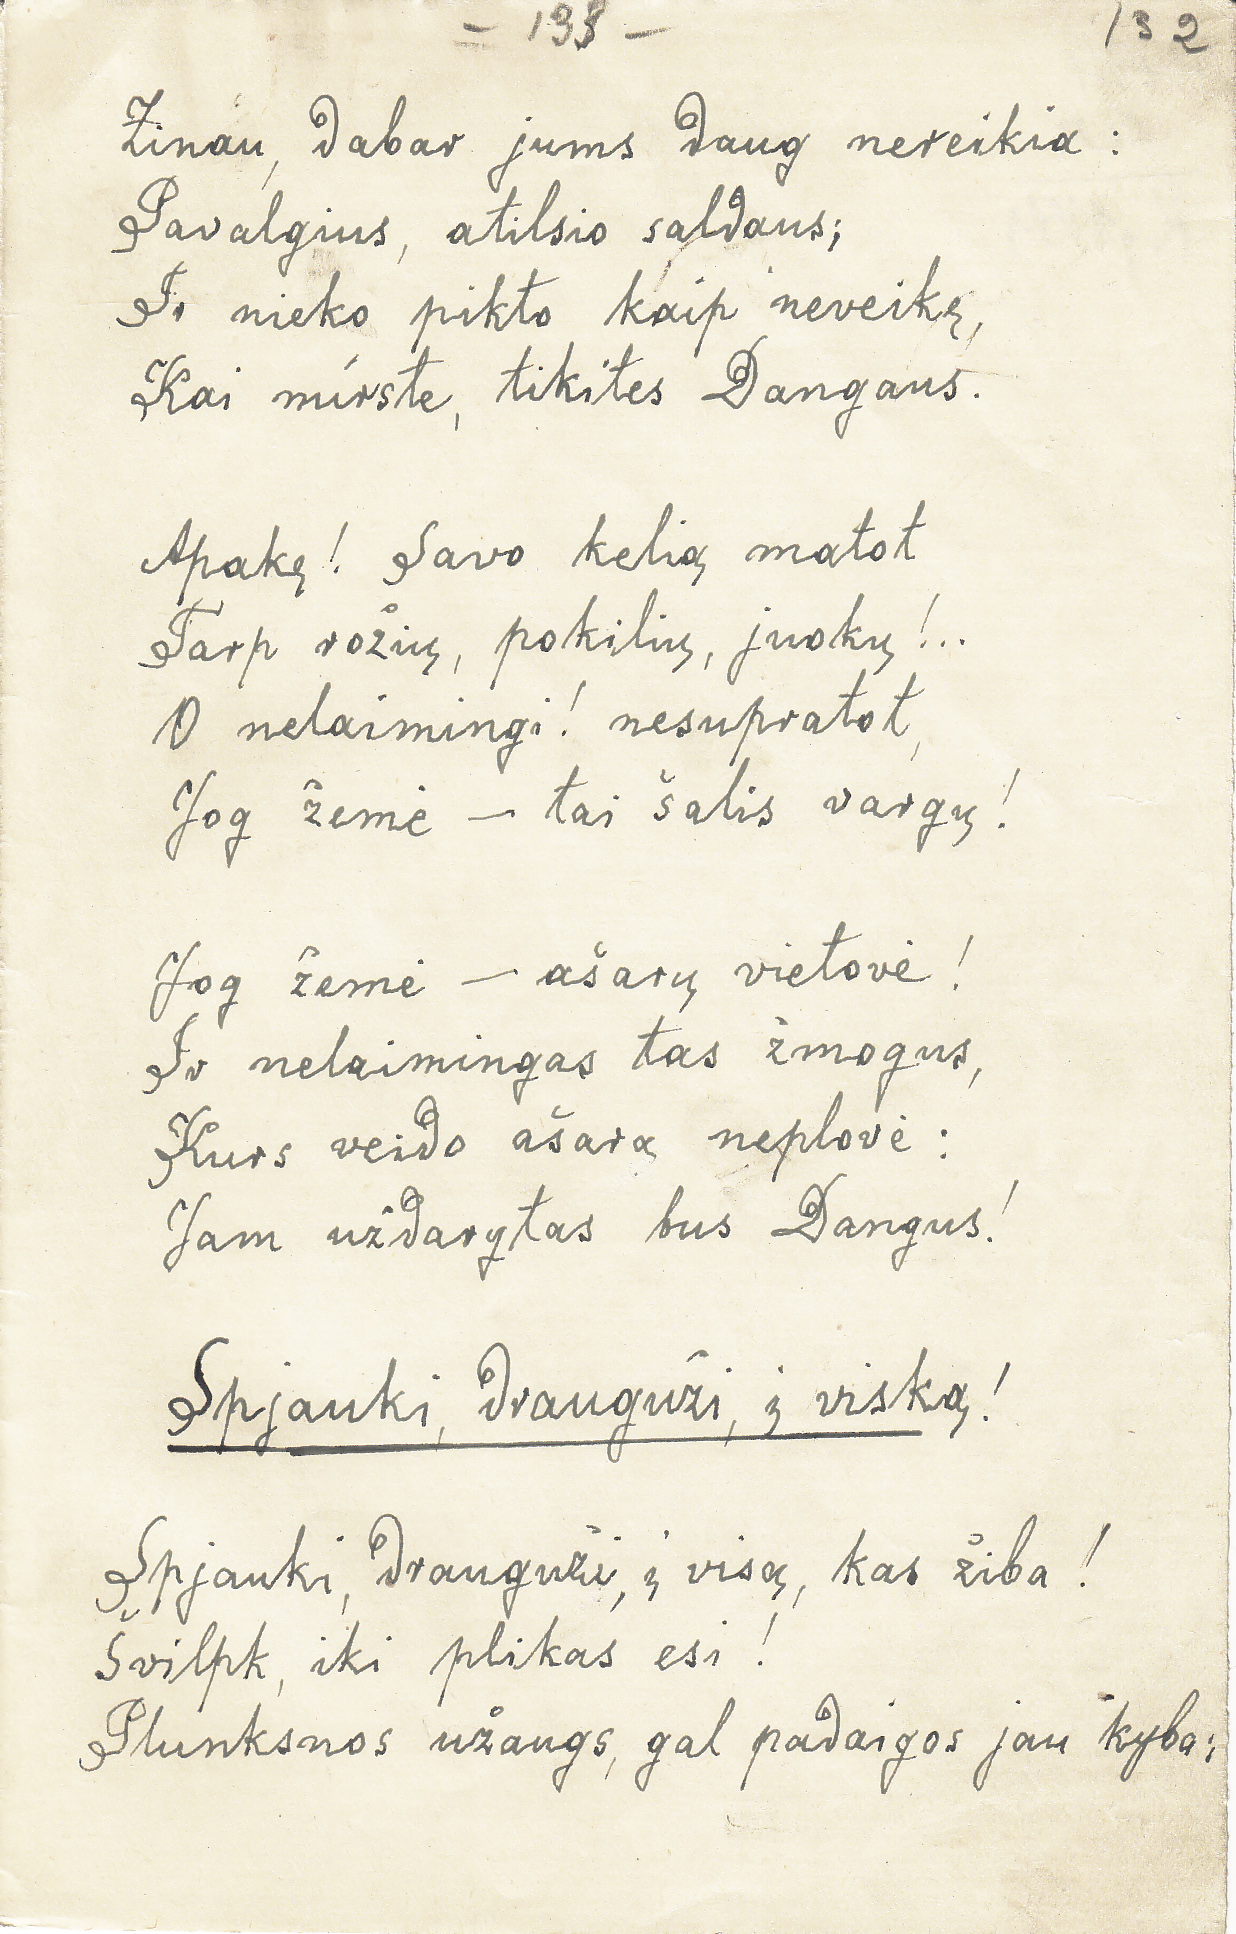 - 133 - 132
Žinau, dabar jums daug nereikia:
Pavalgius, atilsio saldaus;
Ir nieko pikto kaip neveikę,
Kai mirste, tikitės Dangaus.
Apakę! Savo kelią matot
Tarp rožių, pokilių, juokų!..
O nelaimingi! nesupratot,
Jog žemė — tai šalis vargų!
Jog žemė — ašarų vietovė!
Ir nelaimingas tas žmogus,
Kurs veido ašara neplovė:
Jam uždarytas bus Dangus!
Spjauki, drauguži, į viską!
Spjauki, drauguži, į visą, kas žiba!
Švilpk, iki plikas esi!
Plunksnos užaugs, gal padaigos jau kyba;